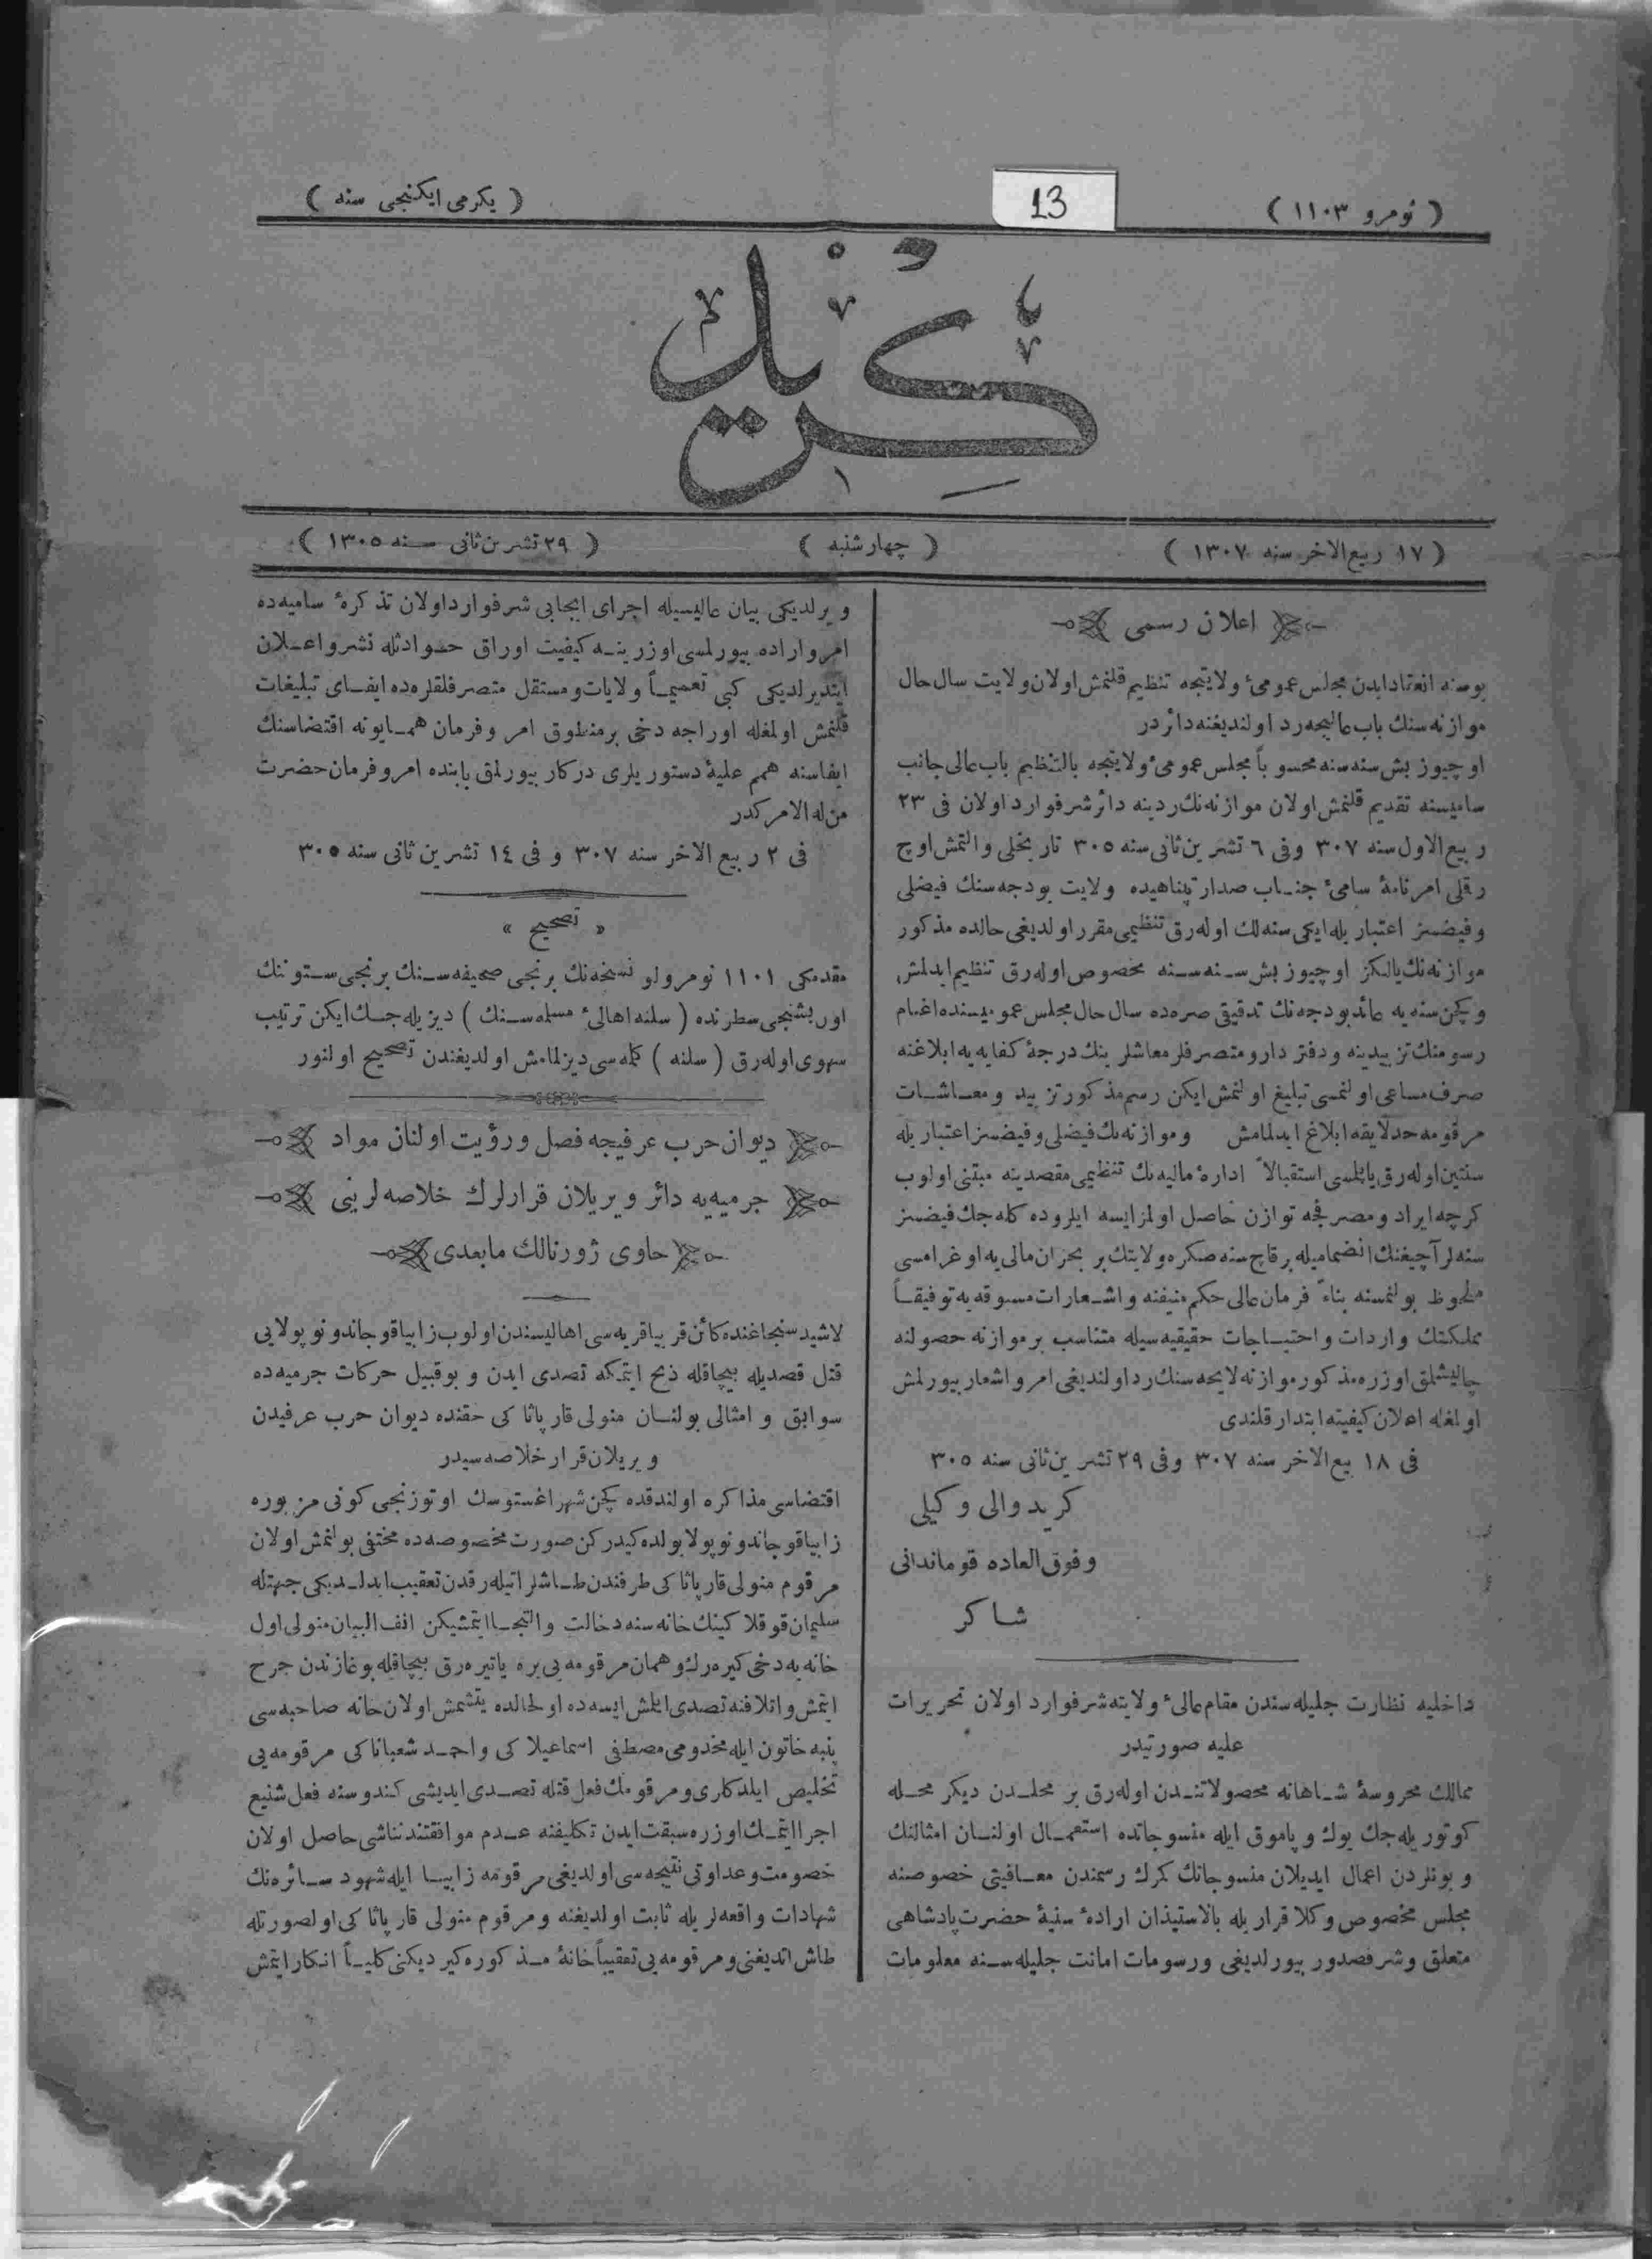 ( نومرو ١١٠٣ )
13
( يكرمى ايكنجى سنه )
كريد
( ١٧ ربيع الاخر سنه ١٣٠٧ )
( چهارشنبه )
( ٢٩ تشرين ثانى سنه ١٣٠٥ )
اعلان رسمى
بوسنه انعقاد ايدن مجلس عمومىء ولايتجه تنظيم قلنمش اولان ولايت سال حال
موازنه سنك باب عاليجه رد اولنديغنه دائردر
اوچيوز بش سنه سنه محسوباً مجلس عمومىء ولايتجه بالتنظيم باب عالى جانب
ساميسنه تقديم قلنمش اولان موازنه نك ردينه دائر شرفوارد اولان فى ٢٣
ربيع الاول سنه ٣٠٧ وفى ٦ تشرين ثانى سنه ٣٠٥ تاريخلى والتمش اوچ
رقلى امرنامۀ سامىء جناب صدارتپناهيده ولايت بودجه سنك فيضلى
وفيضسز اعتباريله ايكى سنه لك اوله رق تنظيمى مقرر اولديغى حالده مذكور
موازنه نك يالكز اوچيوز بش سنه سنه مخصوص اوله رق تنظيم ايدلمش
وكچن سنه يه عائد بودجه نك تدقيقى صره ده سال حال مجلس عموميسنده اغنام
رسومنك تزييدينه ودفتردار ومتصرفلر معاشلرينك درجۀ كفايه يه ابلاغنه
صرف مساعى اولنمسى تبليغ اولنمش ايكن رسم مذكور تزييد ومعاشات
مرقومه حد لايقه ابلاغ ايدلمامش وموازنه نك فيضلى وفيضسز اعتباريله
سنتين اوله رق ياپلمسى استقبالاً ادارۀ ماليه نك تنظيمى مقصدينه مبتنى اولوب
كرچه ايراد ومصرفجه توازن حاصل اولمز ايسه ايلروده كله جك فيضسز
سنه لر آچيغنك انضماميله برقاچ سنه صكره ولايتك بر بحران مالى يه اوغرامسى
ملحوظ بولنمسنه بناءً فرمان عالى حكم منيفنه واشعارات مسبوقه يه توفيقاً
مملكتك واردات واحتياجات حقيقيه سيله متناسب برموازنه حصولنه
چاليشلمق اوزره مذكور موازنه لايحه سنك رد اولنديغى امر واشعار بيورلمش
اولمغله اعلان كيفيته ابتدار قلندى
فى ١٨ بيع الاخر سنه ٣٠٧ وفى ٢٩ تشرين ثانى سنه ٣٠٥
كريد والى وكيلى
وفوق العاده قوماندانى
شاكر
داخليه نظارت جليله سندن مقام عالىء ولايته شرفوارد اولان تحريرات
عليه صورتيدر
ممالك محروسۀ شاهانه محصولاتندن اوله رق بر محلدن ديكر محله
كوتوريله جك يوك وپاموق ايله منسوجاتده استعمال اولنان امثالنك
وبونلردن اعمال ايديلان منسوجاتك كمرك رسمندن معافيتى خصوصنه
مجلس مخصوص وكلا قراريله بالاستيذان ارادۀ سنيۀ حضرت پادشاهى
متعلق وشرفصدور بيورلديغى ورسومات امانت جليله سنه معلومات
ويرلديكى بيان عاليسيله اجراى ايجابى شرفوارد اولان تذكرۀ ساميه ده
امر واراده بيورلمسى اوزرينه كيفيت اوراق حوادثله نشر واعلان
ايتديرلديكى كبى تعميماً ولايات ومستقل متصرفلقلره ده ايفاى تبليغات
قلنمش اولمغله اوراجه دخى برمنطوق امر وفرمان همايونه اقتضاسنك
ايفاسنه همم عليۀ دستوريلرى دركار بيورلمق بابنده امر وفرمان حضرت
من له الامركدر
فى ٢ ربيع الاخر سنه ٣٠٧ وفى ١٤ تشرين ثانى سنه ٣٠٥
« تصحيح »
مقدمكى ١١٠١ نومرولو نسخه نك برنجى صحيفه سنك برنجى ستوننك
اون بشنجى سطرنده ( سلنه اهالىء مسلمه سنك ) ديزيله جك ايكن ترتيب
سهوى اوله رق ( سلنه ) كله سى ديزلمامش اولديغندن تصحيح اولنور
ديوان حرب عرفيجه فصل ورؤيت اولنان مواد
جرميه يه دائر ويريلان قرارلرك خلاصه لرينى
حاوى ژورنالك مابعدى
لاشيد سنجاغنده كائن قريباقريه سى اهاليسندن اولوب زابياقو جاندونوپولايى
قتل قصديله بيچاقله ذبح ايتمكه تصدى ايدن وبوقبيل حركات جرميه ده
سوابق و امثالى بولنان منولى قارپاثاكى حقنده ديوان حرب عرفيدن
ويريلان قرار خلاصه سيدر
اقتضاسى مذاكره اولندقده كچن شهر اغستوسك اوتوزنجى كونى مزبوره
زابياقو جاندونوپولا يولده كيدركن صورت مخصوصه ده مختفى بولنمش اولان
مرقوم منولى قارپاثاكى طرفندن طاشلر اتيله رقدن تعقيب ايدلديكى جهتله
سليمان قوقلاكينك خانه سنه دخالت والتجا ايتمشيكن انف البيان منولى اول
خانه يه دخى كيره رك وهمان مرقومه يى يره ياتيره رق بيچاقله بوغازندن جرح
ايتمش واتلافنه تصدى ايلمش ايسه ده اولحالده يتشمش اولان خانه صاحبه سى
پنبه خاتون ايله مخدومى مصطفى اسماعيلاكى واحمد شعباناكى مرقومه يى
تخليص ايلدكلرى ومرقومك فعل قتله تصدى ايديشى كندوسنه فعل شنيع
اجرا ايتمك اوزره سبقت ايدن تكليفنه عدم موافقتندن ناشى حاصل اولان
خصومت وعداوتى نتيجه سى اولديغى مرقومه زابيا ايله شهود سائره نك
شهادات واقعه لريله ثابت اولديغنه ومرقوم منولى قارپاثاكى اولصورتله
طاش اتديغنى ومرقومه يى تعقيباً خانۀ مذكوره كيرديكنى كلياً انكار ايتمش